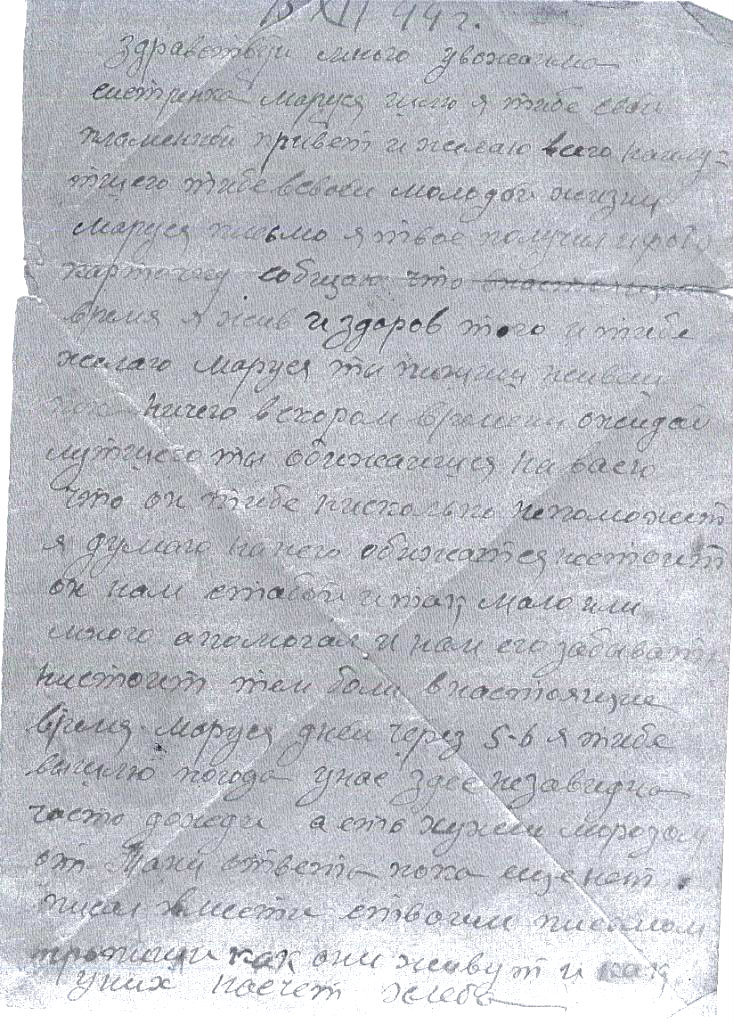 13 XII 44 г.
Здравствуй много уважаима
систринка Маруся шлю я тибе свой
пламенной привет и желаю всего наилу=
тшего тибе всвоей молодой жизни
Маруся письмо я твое получил и фото
карточку собщаю что внастоящее
время я жив и здоров того и тибе
желаю Маруся ты пишиш живеш
пока ничего вскором времени ожидай
лутшего ты обижаишся на васю
что он тибе нисколько непоможет
я думаю нанего обижатся нестоит
он нам стобой и так мало или
много а помогал и нам его забывать
нистоит тем боли внастоящие
время. Маруся дней через 5-6 я тибе
вышлю погода унас здес незавидна
часто дожди а есть и
от Мани ответа пока еще нет.
писал вмести ствоим писмом
как они живут и как
уних насчет хлеба